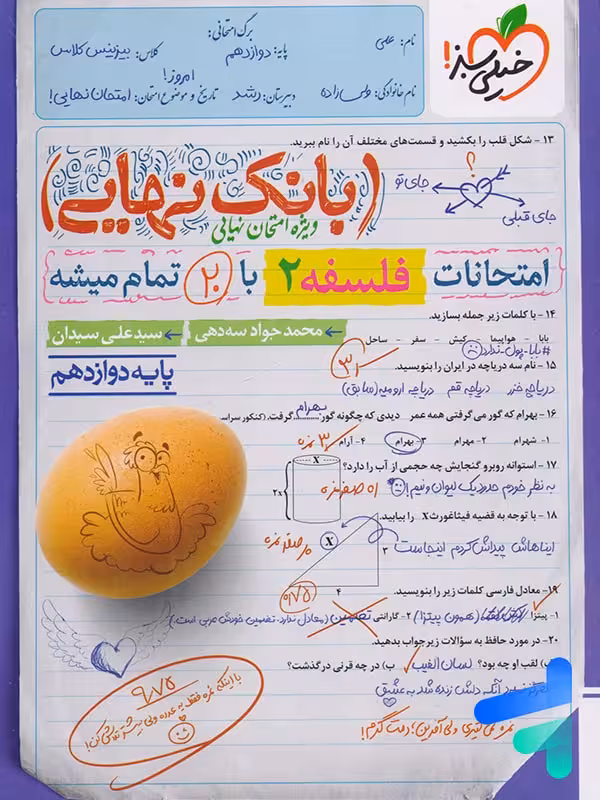 خیلی سبز!
برگ امتحانی:
نام: علی
پایه: دوازدهم
کلاس: بیزینس کلاس
نام خانوادگی: عباس زاده
دبیرستان: رشد
تاریخ و موضوع امتحان: امروز! امتحان نهایی!
۱۳ - شکل قلب را بکشید و قسمت‌های مختلف آن را نام ببرید.
؟
جای تو
جای قبلی
(بانک نهایی)
ویژه امتحان نهایی
امتحانات فلسفه ۲ با ۲۰ تمام میشه
محمدجواد سه‌دهی
سیدعلی سیدان
پایه دوازدهم
۱۴ - با کلمات زیر جمله بسازید.
بابا - هواپیما - کیش - سفر - ساحل
#بابا-پول-ندارد
۱۵ - نام سه دریاچه در ایران را بنویسید.
دریاچه خزر دریاچه قم دریاچه ارومیه (سابق)
۱۶ - بهرام که گور می‌گرفتی همه عمر دیدی که چگونه گور بهرام گرفت. (کنکور سراسر
۱- شهرام ۲- مهرام ۳- بهرام ۴- آرام
۳ نمره
۱۷ - استوانه روبرو گنجایش چه حجمی از آب را دارد؟
به نظر خودم حدود یک لیوان و نیم!
اه صفر نمره
X
۲X
۱۸ - با توجه به قضیه فیثاغورث X را بیابید.
ایناهاش پیداش کردم اینجاست
X
۳
۴
صفر نمره
۰/۷۵
۱۹ - معادل فارسی کلمات زیر را بنویسید.
۱- پیتزا (همون پیتزا) ۲- گارانتی تضمین (معادل ندارد. تضمین خودش عربی است.)
۲۰- در مورد حافظ به سؤالات زیر جواب بدهید.
لقب او چه بود؟ لسان الغیب ب) در چه قرنی درگذشت؟
هرگز نمیرد آنکه دلش زنده شد به عشق
نمره نمی‌گیری ولی آفرین، دمت گرم!
۹/۷۵
با اینکه نمره فقط یه عدده ولی بیشتر تلاش کن!